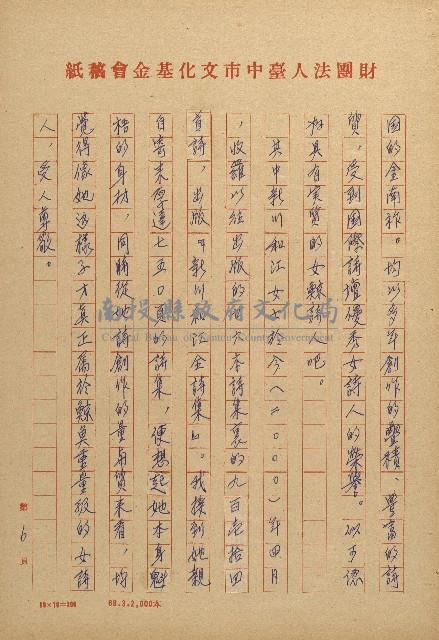 財團法人臺中市文化基金會稿紙
國的金南祚。均以多年創作的豐積、豐富的詩
質，受到國際詩壇優秀女詩人的榮譽。似可認
為具有實質的女鯨詩人吧。
其中新川和江女士於今（二〇〇〇）年四月
，收羅以往出版的十六本詩集裏的九百壹拾四
首詩，出版『新川和江全詩集』。我接到她親
自寄來厚達七五〇頁的詩集，便想起她本身魁
梧的身材，同時從她詩創作的量與質來看，均
覺得像她這樣子才真正屬於鯨魚重量級的女詩
人，受人尊敬。
第6頁
南投縣政府文化局
Cultural Bureau of Nantou County Government
68.3.2,000本